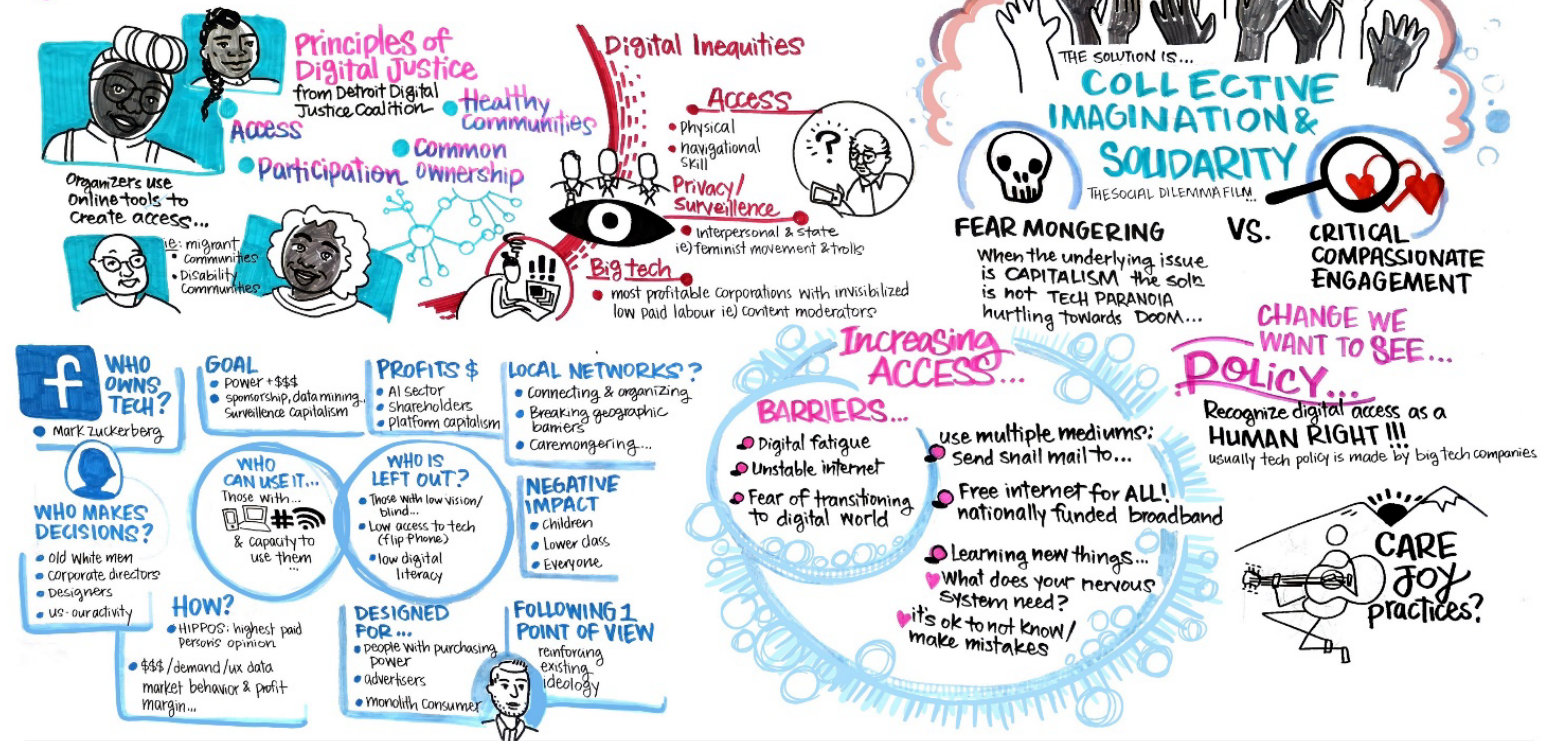 Principles of
Digital Justice
from Detroit Digital
Justice Coalition
Access
Healthy
communities
Participation
Common
ownership
Organizers use
online tools to
create access...
ie: migrant
communities
Disability
Communities
Digital Inequities
Access
Physical
navigational
skill
?
Privacy/
Surveillence
interpersonal & state
ie) feminist movement & trolls
Big tech
!!!
most profitable corporations with invisibilized
low paid labour ie) content moderators
THE SOLUTION IS...
COLLECTIVE
IMAGINATION &
SOLIDARITY
THE SOCIAL DILEMMA FILM!!...
FEAR MONGERING
When the underlying issue
is CAPITALISM the soln
is not TECH PARANOIA
hurtling towards DOOM...
VS.
CRITICAL
COMPASSIONATE
ENGAGEMENT
f
WHO
OWNS
TECH?
Mark zuckerberg
GOAL
Power + $$$
sponsorship, data mining..
surveillence capitalism
PROFITS $
AI sector
Shareholders
Platform capitalism
LOCAL NETWORKS?
Connecting & organizing
Breaking geographic
barriers
Caremongering...
WHO MAKES
DECISIONS?
Old white men
Corporate directors
Designers
us - our activity
WHO
CAN USE IT...
Those with...
#
& capacity to
use them
...
WHO IS
LEFT OUT?
Those with low vision/
blind...
Low access to tech
(flip phone)
low digital
literacy
NEGATIVE
IMPACT
Children
Lower class
Everyone
HOW?
HIPPOS: highest paid
persons opinion
$$$/demand/ux data
market behavior & profit
margin...
DESIGNED
FOR...
people with purchasing
power
advertisers
monolith consumer
FOLLOWING 1
POINT OF VIEW
reinforcing
existing
ideology
Increasing
ACCESS...
BARRIERS...
Digital fatigue
Unstable internet
Fear of transitioning
to digital world
use multiple mediums:
send snail mail to...
Free internet for ALL!
nationally funded broadband
Learning new things...
What does your nervous
system need?
it's ok to not know/
make mistakes
CHANGE WE
WANT TO SEE...
POLICY...
Recognize digital access as a
HUMAN RIGHT!!!
usually tech policy is made by big tech companies
CARE
JOY
practices?